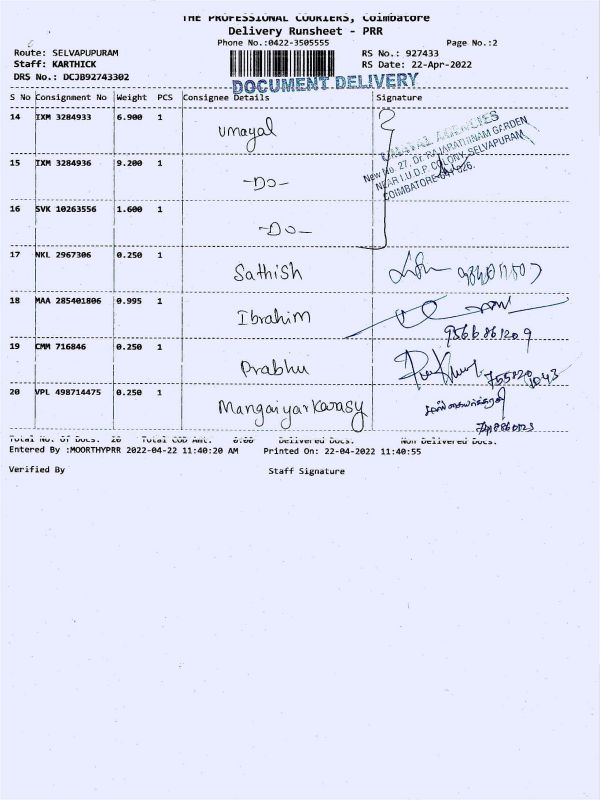 THE PROFESSIONAL COURIERS, Coimbatore
Delivery Runsheet - PRR
Phone No.:0422-3505555 Page No.:2
Route: SELVAPUPURAM RS No.: 927433
Staff: KARTHICK RS Date: 22-Apr-2022
DRS No.: DCJB92743302
DOCUMENT DELIVERY
S No Consignment No Weight PCS Consignee Details Signature
14 IXM 3284933 6.900 1 Umayal
UMAYAL AGENCIES
New No. 27, Dr. RAJARATHINAM GARDEN
NEAR I.U.D.P. COLONY, SELVAPURAM,
COIMBATORE-641 026.
15 IXM 3284936 9.200 1 -Do-
16 SVK 10263556 1.600 1 -Do-
17 NKL 2967306 0.250 1 Sathish
18 MAA 285401806 0.995 1 Ibrahim
9566861209
19 CMM 716846 0.250 1 Prabhu
20 VPL 498714475 0.250 1 Mangaiyarkarasy
Total No. Of Docs. 20 Total COD Amt. 0.00 Delivered Docs. Non Delivered Docs.
Entered By :MOORTHYPRR 2022-04-22 11:40:20 AM Printed On: 22-04-2022 11:40:55
Verified By Staff Signature